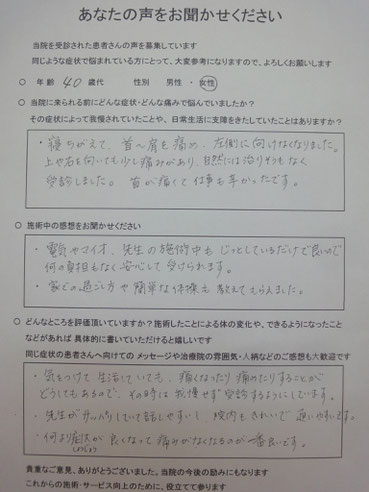 あなたの声をお聞かせください
当院を受診された患者さんの声を募集しています
同じような症状で悩まれている方にとって、大変参考になりますので、よろしくお願いします
○ 年齢 40 歳代 性別 男性 ・ 女性
○ 当院に来られる前にどんな症状・どんな痛みで悩んでいましたか？
その症状によって我慢されていたことや、日常生活に支障をきたしていたことはありますか？
・寝ちがえて、首〜肩を痛め、左側に向けなくなりました。
上や右を向いても少し痛みがあり、自然には治りそうもなく
受診しました。首が痛くて仕事も辛かったです。
○ 施術中の感想をお聞かせください
・電気やマイオ、先生の施術中も じっとしているだけで良いので
何の負担もなく安心して受けられます。
・家での過ごし方や簡単な体操も教えてもらえました。
○ どんなところを評価頂いていますか？施術したことによる体の変化や、できるようになったこと
などがあれば 具体的に書いていただけると嬉しいです
同じ症状の患者さんへ向けての メッセージや治療院の雰囲気・人柄などのご感想も大歓迎です
・気をつけて生活していても、痛くなったり痛めたりすることが
どうしてもあるので、その時は我慢せず受診するようにしています。
・先生がサッパリしていて話しやすいし、院内もきれいで通いやすいです。
・何より症状が良くなって痛みがなくなるのが一番良いです。
貴重なご意見、ありがとうございました。当院の今後の励みにもなります
これからの施術・サービス向上のために、役立てて参ります